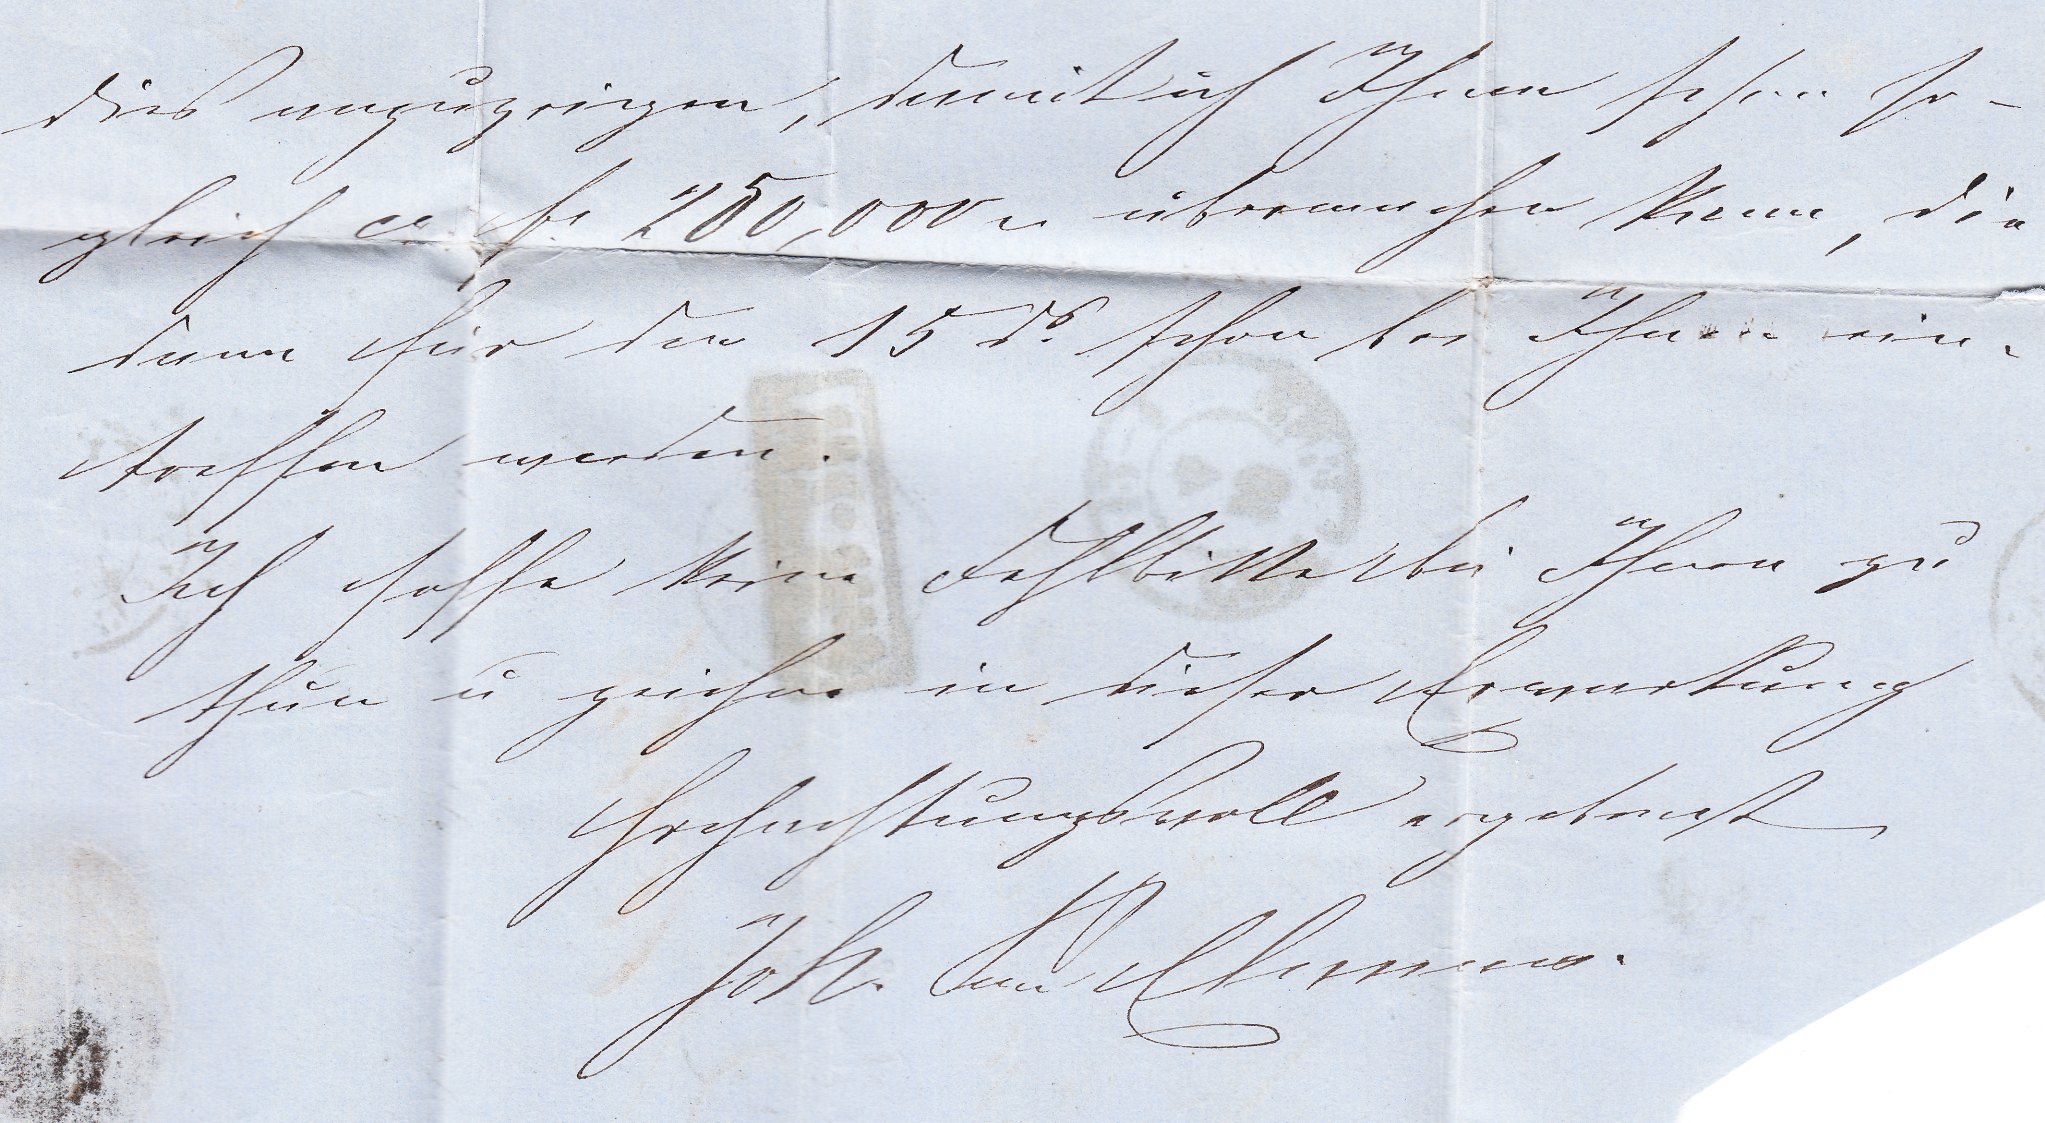 dies anzuzeigen, damit ich Ihnen schon so-
gleich ca fr. 250,000 übermachen kann, die
dann für den 15 ds. schon bei Ihnen ein-
treffen werden.
Ich hoffe keine Fehlbitte bei Ihnen zu
thun u zeichne in dieser Erwartung
Hochachtungsvoll ergebenst
Joh.